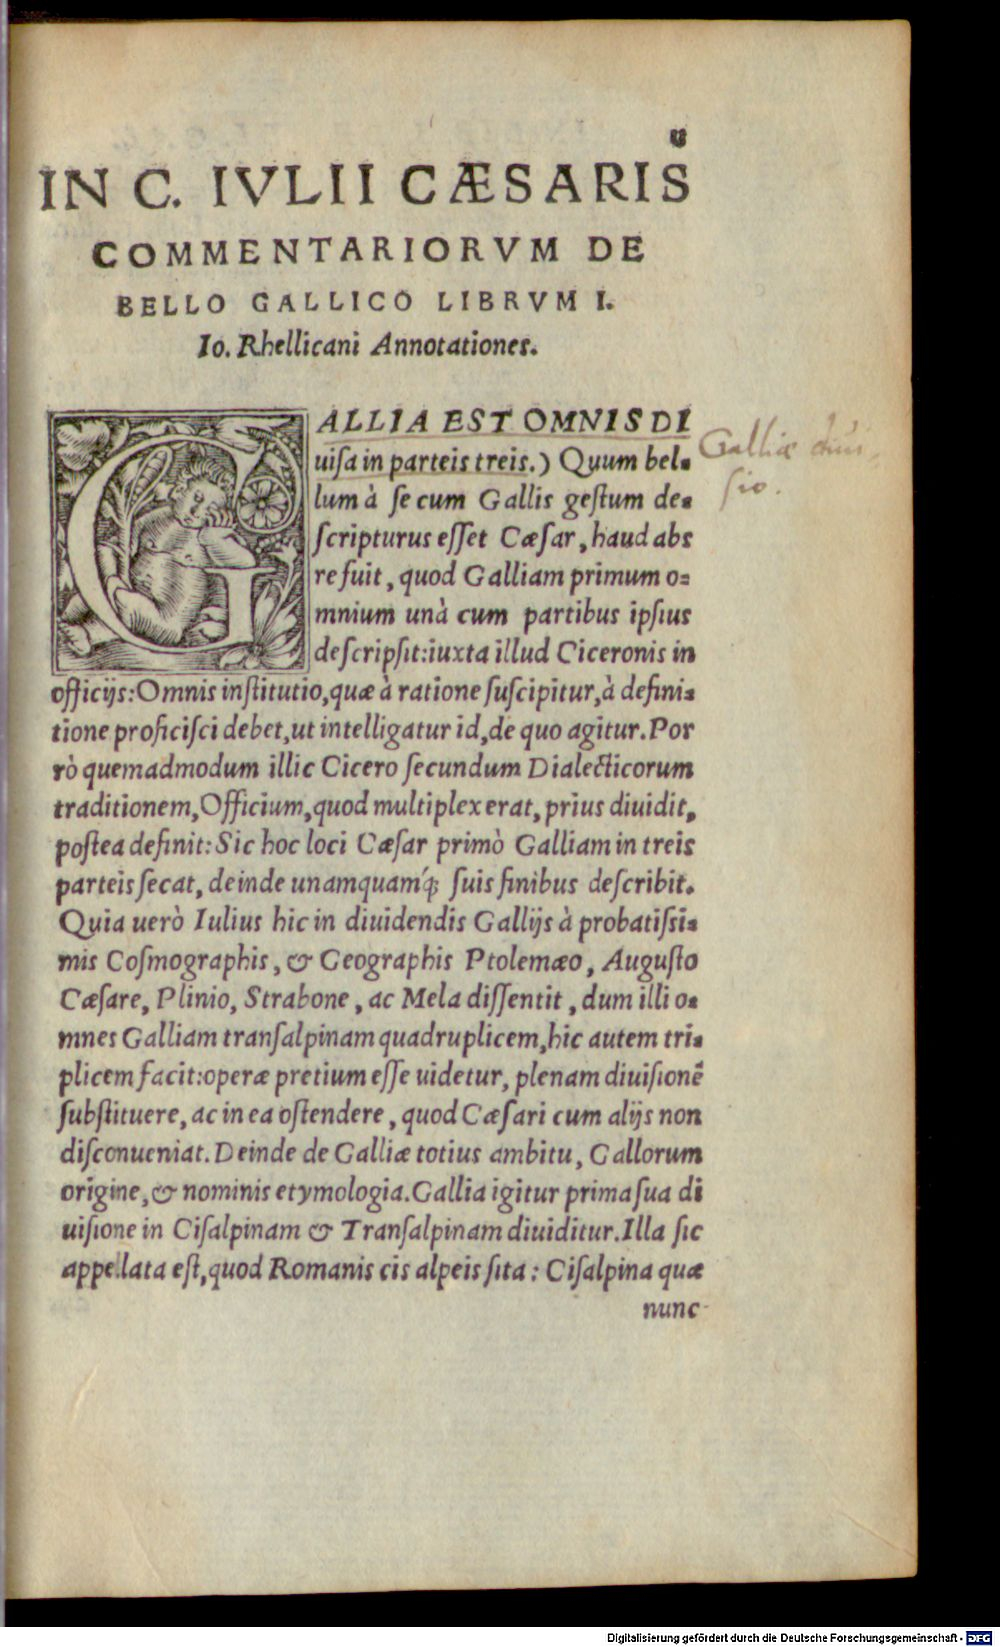 IN C. IVLII CÆSARIS
COMMENTARIORVM DE
BELLO GALLICO LIBRVM I.
Io. Rhellicani Annotationes.
GALLIA EST OMNIS DI
uiſa in parteis treis.) Quum bel-
lum à ſe cum Gallis geſtum de-
ſcripturus eſſet Cæſar, haud abs
re fuit, quod Galliam primum o-
mnium unà cum partibus ipſius
deſcripſit: iuxta illud Ciceronis in
officijs: Omnis inſtitutio, quæ à ratione ſuſcipitur, à defini-
tione proficiſci debet, ut intelligatur id, de quo agitur. Por
rò quemadmodum illic Cicero ſecundum Dialecticorum
traditionem, Officium, quod multiplex erat, prius diuidit,
poſtea definit: Sic hoc loci Cæſar primò Galliam in treis
parteis ſecat, deinde unamquamq́; ſuis finibus deſcribit.
Quia uerò Iulius hic in diuidendis Gallijs à probatiſsi-
mis Coſmographis, & Geographis Ptolemæo, Auguſto
Cæſare, Plinio, Strabone, ac Mela diſſentit, dum illi o-
mnes Galliam tranſalpinam quadruplicem, hic autem tri-
plicem facit: operæ pretium eſſe uidetur, plenam diuiſionē
ſubſtituere, ac in ea oſtendere, quod Cæſari cum alijs non
diſconueniat. Deinde de Galliæ totius ambitu, Gallorum
origine, & nominis etymologia. Gallia igitur prima ſua di
uiſione in Ciſalpinam & Tranſalpinam diuiditur. Illa ſic
appellata eſt, quod Romanis cis alpeis ſita: Ciſalpina quæ
nunc
Galliæ diui-
sio.
Digitalisierung gefördert durch die Deutsche Forschungsgemeinschaft - DFG